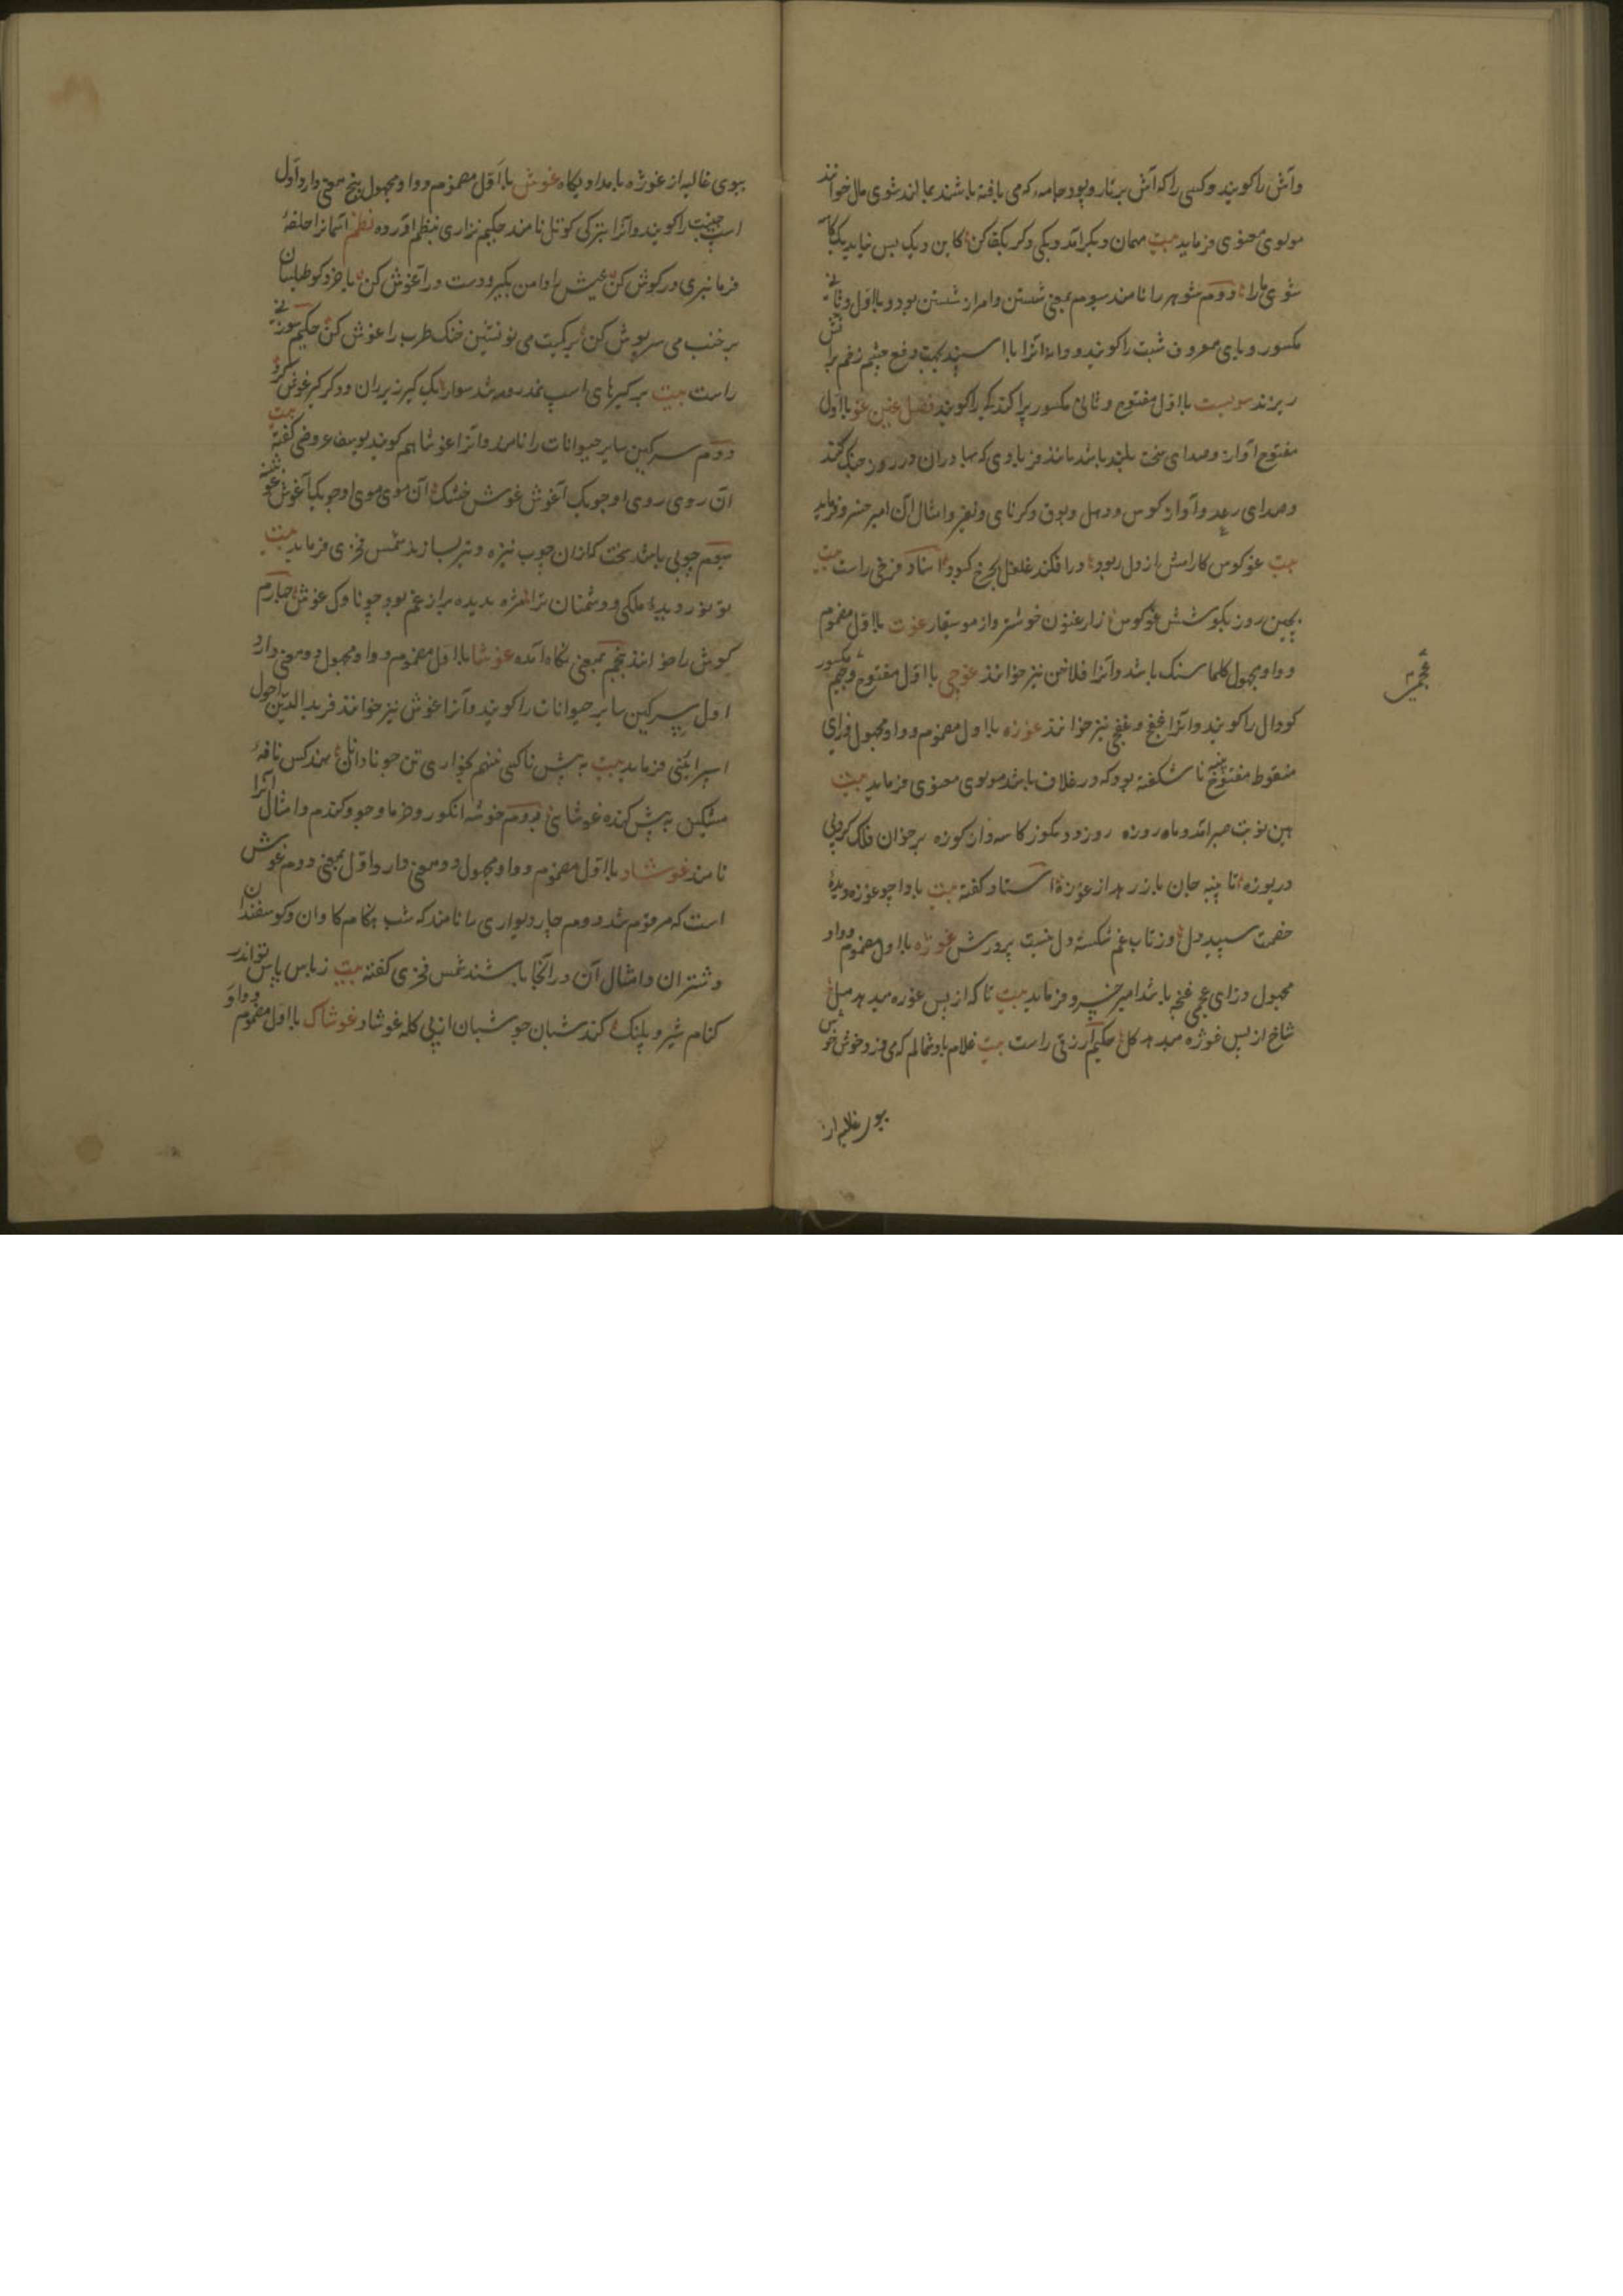 وآش را کویند وکسی را که آش بر تار و پود جامه که می بافته باشند بمالند شوی مال خوانند
مولوی معنوی فرماید بیت مهمان دیگر آمد دیکی دکر بکف کن کاین دیک بس نیاید یک کاسه
شوی ما را دوم شوهر را نامند سیوم بمعنی شستن وامر از شستن بود و با اول وثانی
مکسور ویای معروف شبت را کویند و دانه آنرا با اسپند بجهت دفع چشم زخم بر آتش
ریزند سویست با اول مفتوح وثانی مکسور پراکندکی را کویند فصل غین غو با اول
مفتوح آواز وصدای سخت بلند باشد مانند فریادی که بهادران در روز جنک کنند
وصدای رعد وآواز کوس ودهل وبوق وکرنای ونفیر وامثال آن امیر خسرو فرماید
بیت غو کوس کارامش از دل ربود در افکند غلغل بچرخ کبود استاد فرخی راست بیت
بچین روز بکوشش غو کوس زارغنون خوشتر واز موسیقار غوت با اول مضموم
و واو مجهول کلماسنک باشد وآنرا فلاخن نیز خوانند غوجی با اول مفتوح وجیم مکسور
عجمی
کودال را کویند وآنرا غفج وغفجی نیز خوانند غوزه با اول مضموم و واو مجهول وزای
منقوط مفتوح پنبه ناشکفته بود که در غلاف باشد مولوی معنوی فرماید بیت
این نوبت صبر آمد وماه روزه روزی دو مکوز کاسه واز کوزه بر خوان فلک کرد پی
دریوزه تا پنبه جان باز رهد از غوزه استاد کفته بیت بادا چو غوزه دیده
خصمت سپید دل وز تاب غم شکسته دل پرورش غوژه با اول مضموم و واو
مجهول وزای عجمی غنچه باشد امیر خسرو فرماید بیت تا که از پس غوره میدهد مل
شاخ از پس غوژه میدهد کل حکیم ازرقی راست بیت غلام باد شمالم که می وزد خوش خوش
بوی غالیه از
ببوی غالیه از غوژه بامداد پکاه غوش با اول مضموم و واو مجهول پنج معنی دارد اول
اسب جنیبت را کویند وآنرا بترکی کوتل نامند حکیم نزاری بنظم آورده نظم آسمانرا حلقهٔ
فرمانبری در کوش کن عیش را دامن بکیر ودست در آغوش کن با خرد کو طیلسان
بر خنب می سرپوش کن بر کمیت می نو نشین خنک طرب را غوش کن حکیم سوزنی
راست بیت بر کیرهای اسپ شد سوار یک کیر زیر ران ودکر کیر غوش کرد
دوم سرکین سایر حیوانات را نامند وآنرا غوشا هم کویند یوسف عروضی کفته بیت
آن روی روی او چو یک آغوش غوش خشک آن موی موی او چو یک آغوش غوشنه
سوم چوبی باشد سخت که از آن چوب نیزه وتیر بسازند شمس فخری فرماید بیت
تو نور دیدهٔ ملکی ودشمنان ترا مژه بدیده بر از غم بود چو ناوک غوش چهارم
کوش را خوانند پنجم بمعنی نکاه آمده غوشا با اول مضموم و واو مجهول دو معنی دارد
اول سرکین سایر حیوانات را کویند وآنرا غوش نیز خوانند فریدالدین احول
اسفراینی فرماید بیت به پیش ناکسی ننهم بخواری تن چو نادانان نهد کس نافهٔ
مشکین به پیش کنده غوشائی دوم خوشهٔ انکور وخرما وجو وکندم وامثال آنرا
نامند غوشاد با اول مضموم و واو مجهول دو معنی دارد اول بمعنی دوم غوش
است که مرقوم شد دوم چاردیواری را نامند که شب هنکام کاوان وکوسفندان
وشتران وامثال آن در آنجا باشند شمس فخری کفته بیت ز باس پاس تو اندر
کنام شیر وپلنک کند شبان چو شبان از پی کله غوشاد غوشاک با اول مضموم و واو